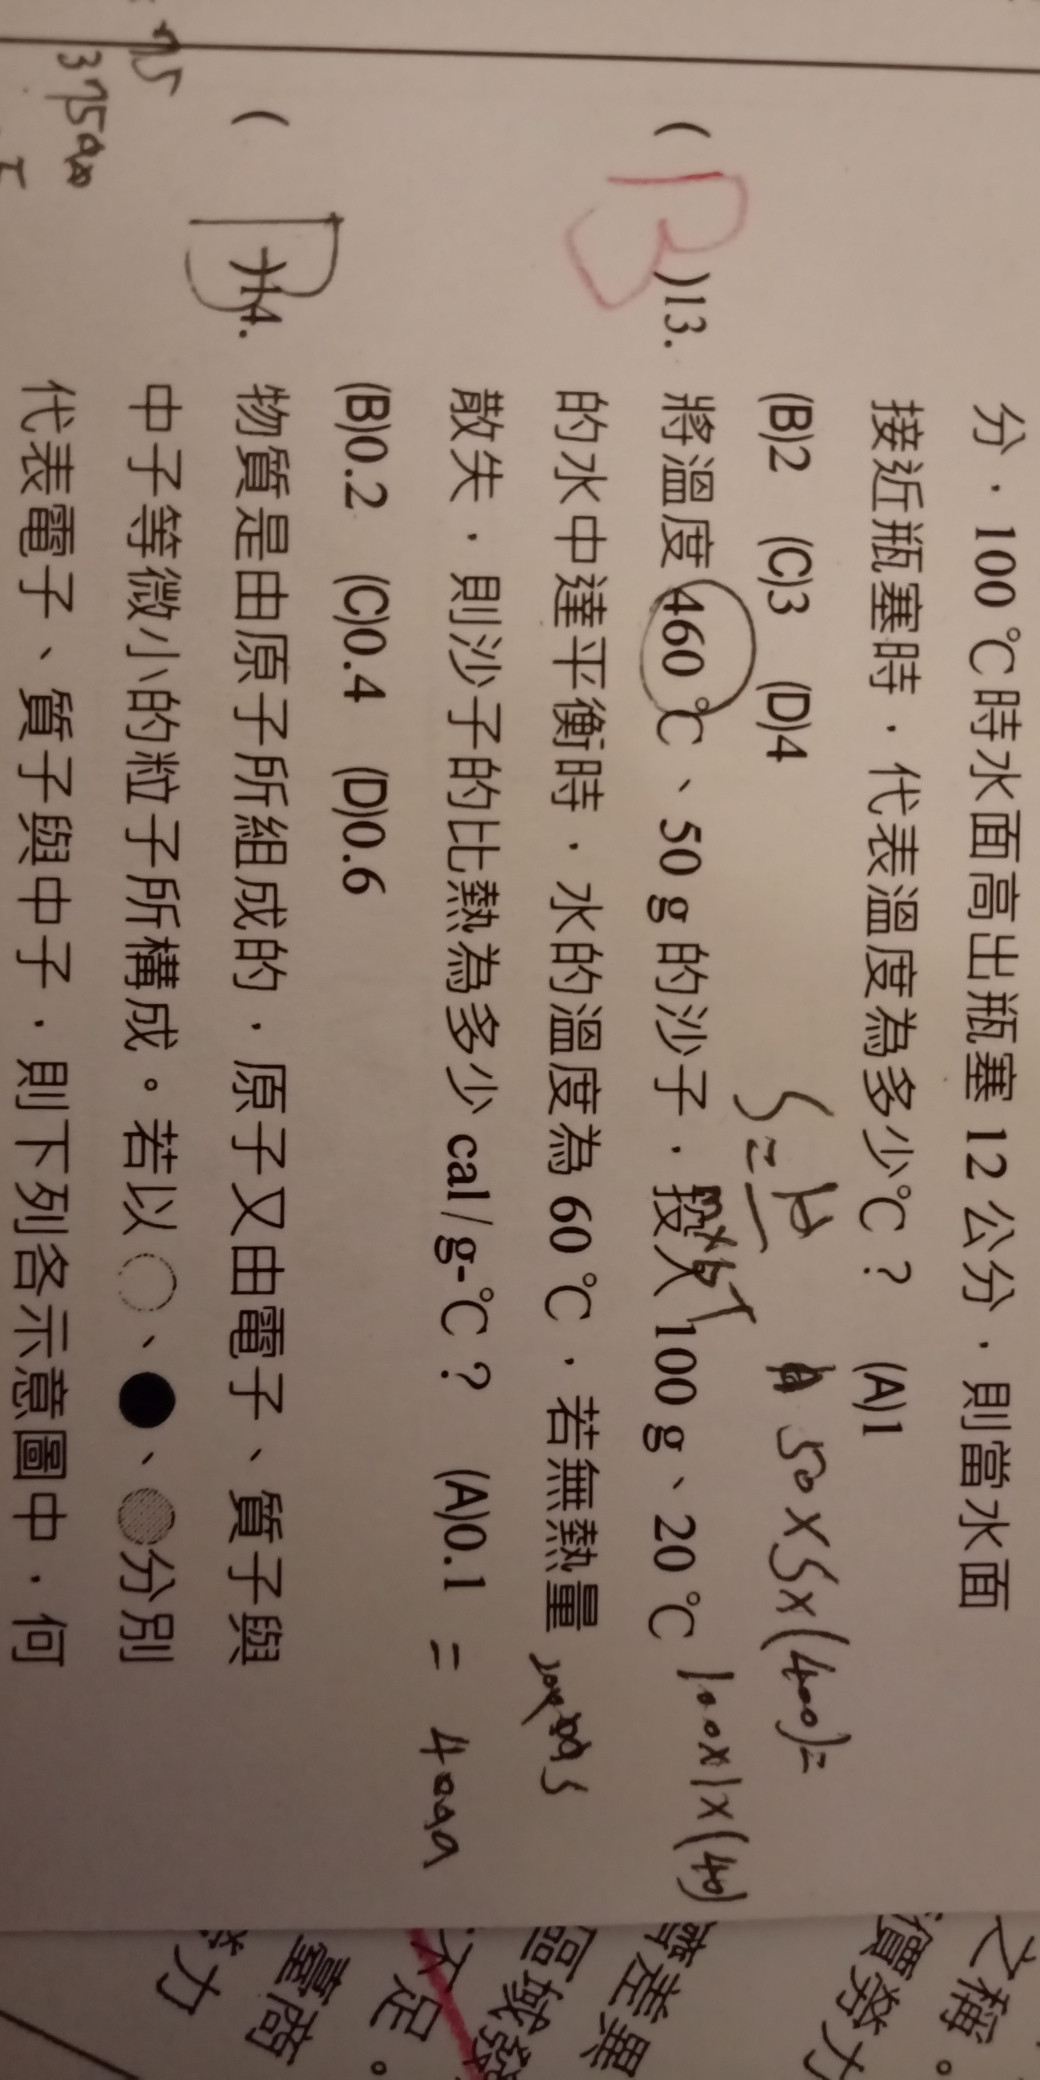 分，100 ℃時水面高出瓶塞 12 公分，則當水面
接近瓶塞時，代表溫度為多少℃？ (A)1
(B)2 (C)3 (D)4
50×S×(400)=
(B)13. 將溫度 460 ℃、50 g 的沙子，投入 100 g、20 ℃
100×1×(40)
的水中達平衡時，水的溫度為 60 ℃，若無熱量
散失，則沙子的比熱為多少 cal/g-℃？ (A)0.1
= 4000
(B)0.2 (C)0.4 (D)0.6
(B)14. 物質是由原子所組成的，原子又由電子、質子與
中子等微小的粒子所構成。若以○、●、 分別
代表電子、質子與中子，則下列各示意圖中，何
之稱。
償勞力
齊差異
區域發
不足。
臺商
勞力